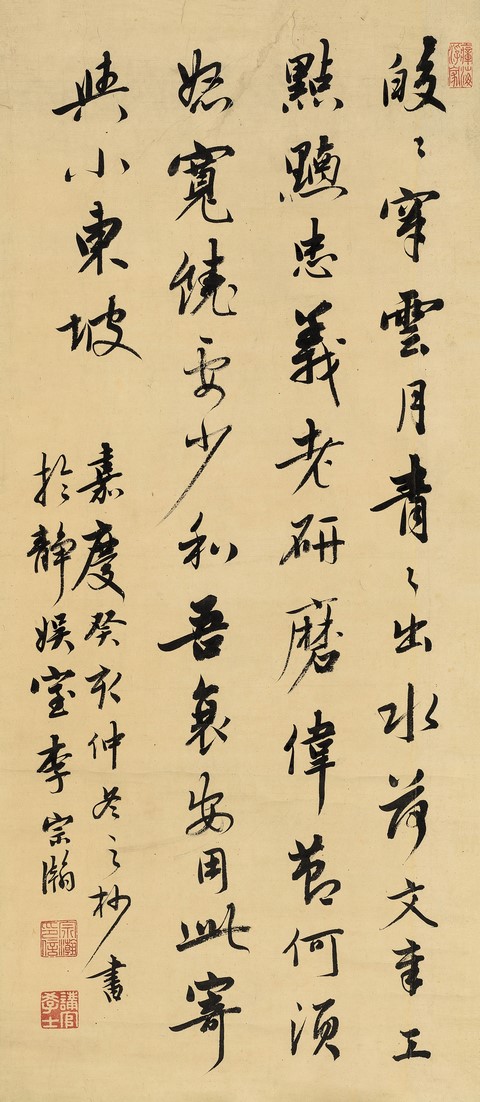 皎〻穿雲月青〻出水荷文章工
點黮忠義老研磨偉節何須
怒寬饒要少和吾衰安用此寄
與小東坡
嘉慶癸亥仲冬之杪書
於靜娛室李宗瀚
宗瀚印信
講官學士